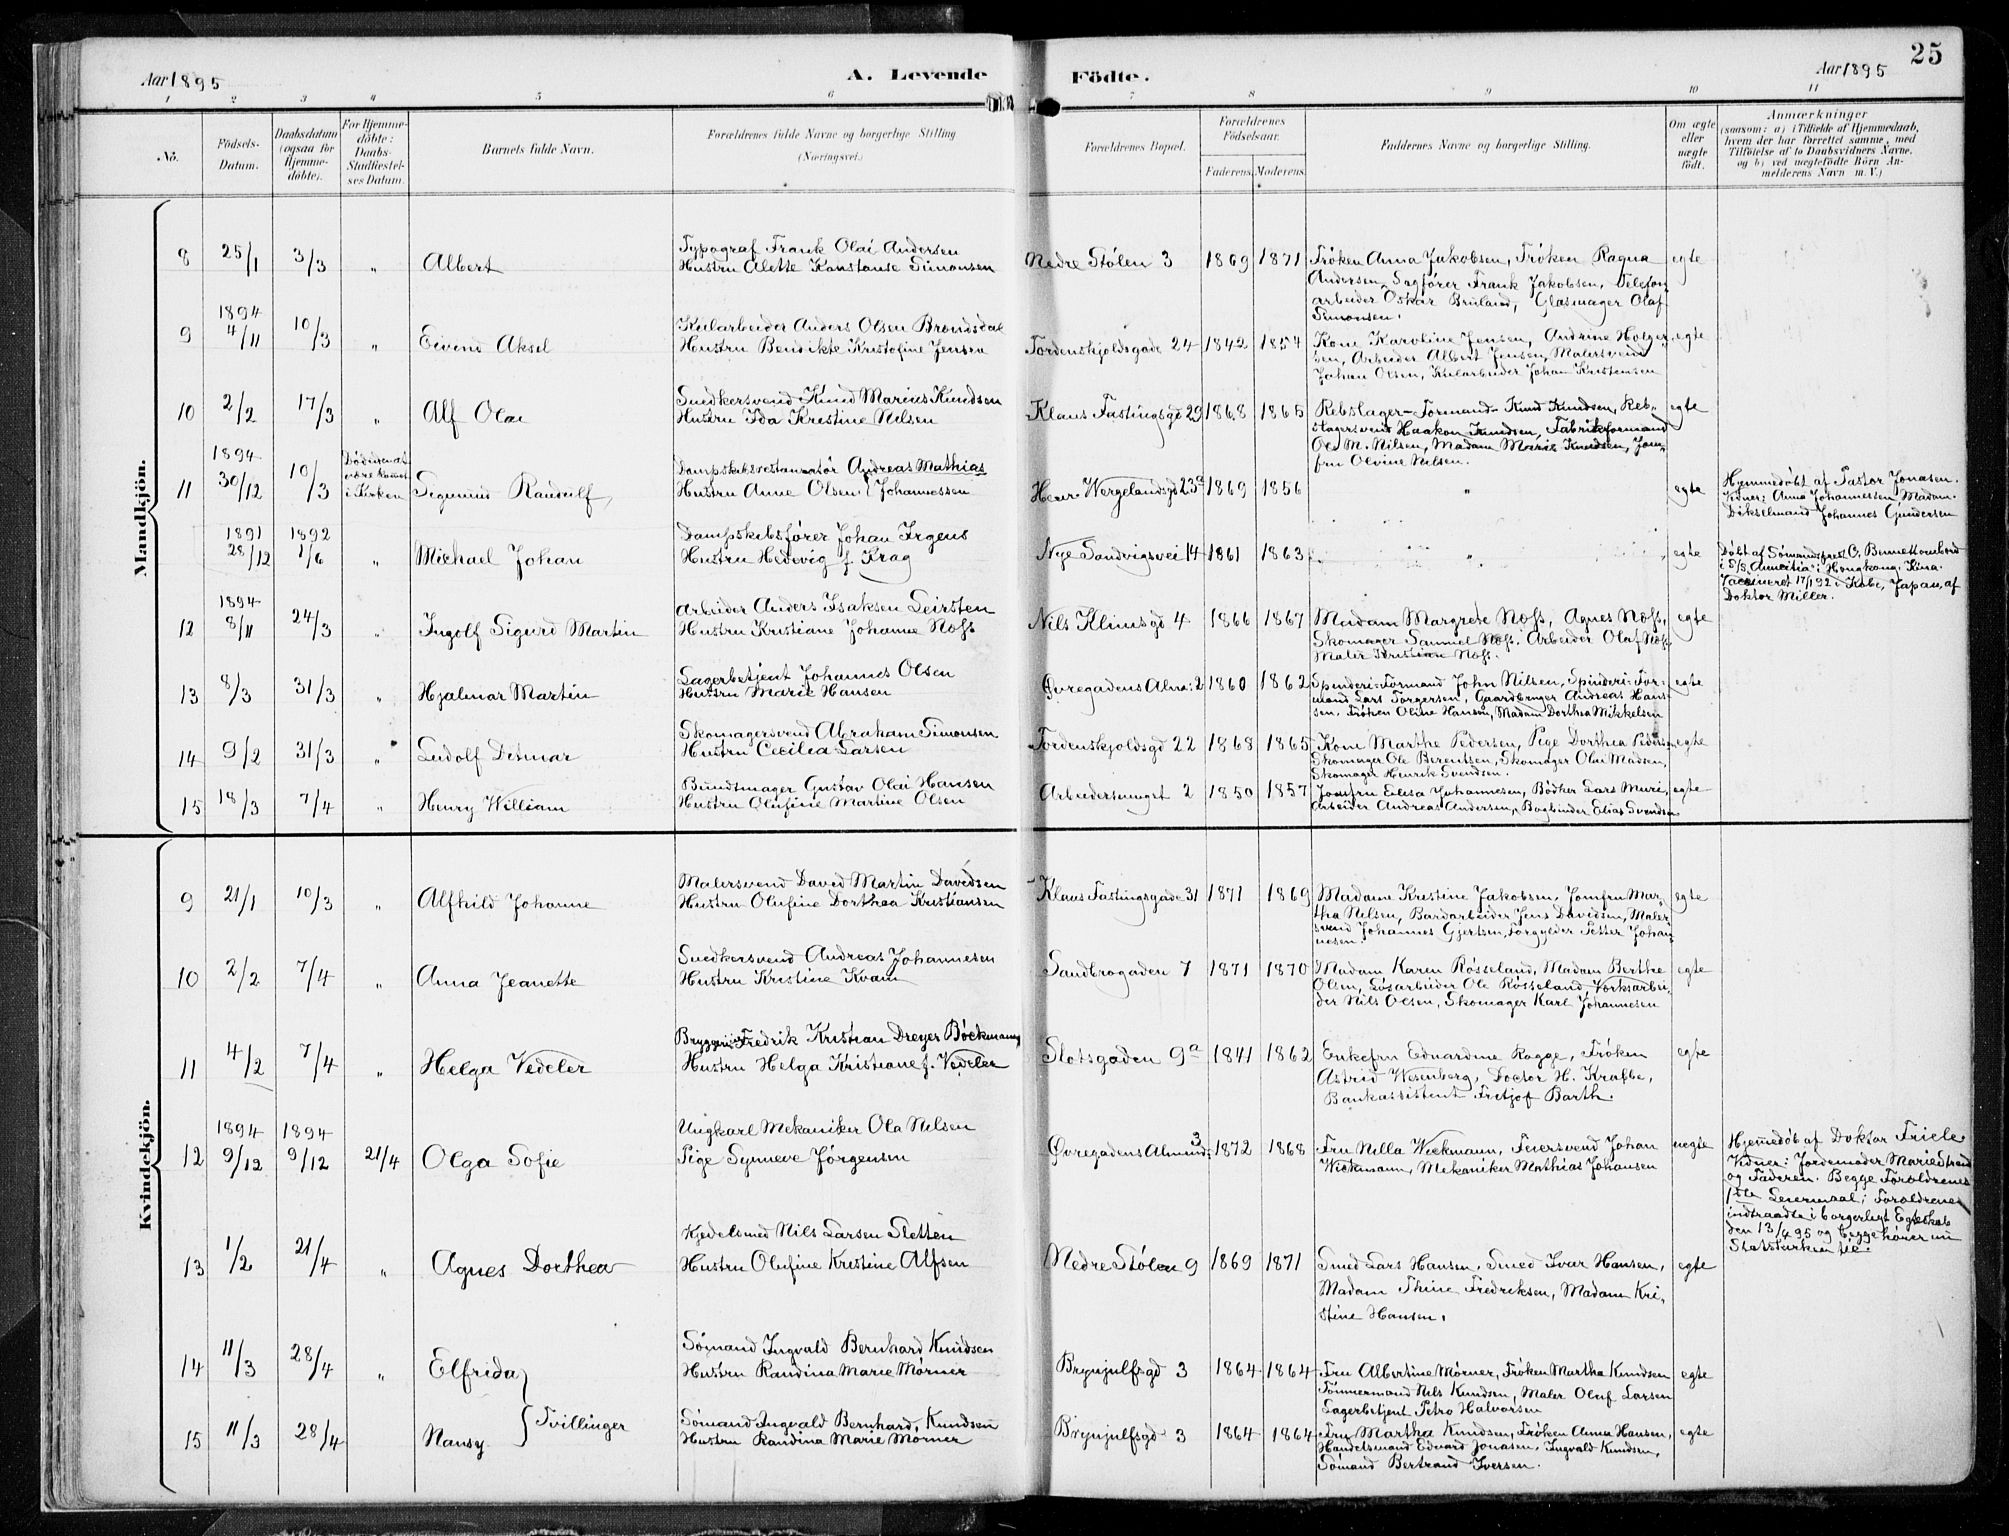 25
Aar 1895
A. Levende Födte.
Aar 1895
1 2 3 4 5 6 7 8 9 10 11
No.
Födsels-Datum.
Daabsdatum (ogsaa for Hjemme-döbte).
For Hjemme-döbte: Daabs-Stadfæstel-ses Datum.
Barnets fulde Navn.
Forældrenes fulde Navne og borgerlige Stilling
(Næringsvei.)
Forældrenes Bopæl.
Forældrenes Födselsaar.
Faderens. Moderens.
Faddernes Navne og borgerlige Stilling.
Om ægte eller uægte födt.
Anmærkninger
(saasom: a) i Tilfælde af Hjemmedaab,
hvem der har forrettet samme, med
Tilföielse af to Daabsvidners Navne,
og b) ved uægtefödte Börn An-
melderens Navn m. V.)
Mandkjön.
8 25/1 3/3 " Albert
Typograf Frank Olai Andersen
Hustru Alette Konstanse Simonsen
Nedre Stølen 3 1869 1871
Frøken Anna Jakobsen, Frøken Ragna
Andersen, Sagfører Frank Jakobsen, Telefon
arbeider Oskar Bruland, Glasmager Olaf
Simonsen.
egte
9 1894 4/11 10/3 " Eivind Aksel
Kularbeider Anders Olsen Brøndsdal
Hustru Bendikte Kristofine Jensen
Tordenskjoldsgade 24 1842 1854
Kone Karoline Jensen, Andrine Holger-
sen, Arbeider Albert Jensen, Malersvend
Johan Olsen, Kularbeider Johan Kristensen
egte
10 2/2 17/3 " Alf Olai
Snedkersvend Knud Marius Knudsen
Hustru Ida Kristine Nilsen
Klaus Fastingsgd 29 1868 1865
Rebslager-Formand Knud Knudsen, Reb-
slagersvend Haakon Knudsen, Fabrikformand
Ole M. Nilsen, Madam Marie Knudsen, Jom-
fru Olvine Nilsen.
egte
11 1894 30/12 10/3
i Kirken
Sigmund Randulf
Dampskibsrestauratør Andreas Mathias
Hustru Anne Olsen Johannessen
Henr Wergelandsgd 23a 1869 1856 " egte
Hjemmedøbt af Pastor Jonasen.
Vidner: Anna Johannessen Madam.
Dikselmand Johannes Gundersen
1891 28/12 1892 1/6 " Michael Johan
Dampskibsfører Johan Irgens
Hustru Hedevig f. Krag
Nye Sandvigsvei 14 1861 1863 " egte
Døbt af Sømandsprest
i S/S "Amicitia" i Hongkong, Kina.
Vaccineret 17/1 92 i Kobe, Japan, af
Doktor Miller.
12 1894 8/11 24/3 " Ingolf Sigurd Martin
Arbeider Anders Isaksen Leirsten
Hustru Kristiane Johanne Noss
Nils Klimsgd 4 1866 1867
Madam Margrete Noss, Agnes Noss,
Skomager Samuel Noss. Arbeider Olaf Noss
Maler Kristian Noss.
egte
13 8/3 31/3 " Hjalmar Martin
Lagerbetjent Johannes Olsen
Hustru Marie Hansen
Øvregadens Alm: 2 1860 1862
Spinderi-Formand John Nilsen, Spinderi-For-
mand Lars Torgersen, Gaardbruger Andreas Han-
sen, Frøken Oline Hansen, Madam Dorthea Mikkelsen
egte
14 9/2 31/3 " Ludolf Detmar
Skomagersvend Abraham Simonsen
Hustru Cecilia Larsen
Tordenskjoldsgd 22 1868 1865
Kone Marthe Pedersen, Pige Dorthea Pedersen
Skomager Ole Berentsen, Skomager Olai Madsen,
Skomager Henrik Svendsen.
egte
15 18/3 7/4 " Henry William
Bundtmager Gustav Olai Hansen
Hustru Olufine Martine Olsen
Arbeidersmuget 2 1850 1857
Jomfru Elisa Johannesen, Bødker Lars Muri,
Arbeider Andreas Andersen, Bogbinder Elias Svendsen
egte
Kvindekjön.
9 21/1 10/3 " Alfhild Johanne
Malersvend David Martin Davidsen
Hustru Olufine Dorthea Kristiansen
Klaus Fastingsgade 31 1871 1869
Madame Kristine Jakobsen, Jomfru Mar-
tha Nilsen, Bardarbeider Jens Davidsen, Maler-
svend Johannes Gjertsen, Forgylder Petter Johan-
nesen.
egte
10 2/2 7/4 " Anna Jeanette
Snedkersvend Andreas Johannesen
Hustru Kristine Kvam
Sandbrogaden 7 1871 1870
Madam Karen Røsseland, Madam Berthe
Olsen, Løsarbeider Ole Røsseland, Verksarbei-
der Nils Olsen, Skomager Karl Johannesen
egte
11 4/2 7/4 " Helga Vedeler
Bryggerieier Fredrik Kristian Dreyer Böckmann
Hustru Helga Kristiane f. Vedeler
Slotsgaden 9a 1841 1862
Enkefru Eduardine Rogge, Frøken
Astrid Wesenberg, Doctor H. Krabbe,
Bankassistent Fretjof Barth.
egte
12 1894 9/12 1894 9/12 21/4 Olga Sofie
Ungkarl Mekaniker Ola Nilsen
Pige Synneve Jørgensen
Øvregadens Almind: 3 1872 1868
Fru Nilla Wiekmann, Fuersvend Johan
Wiekmann, Mekaniker Mathias Johansen
uegte
Hjemmedøb af Doktor Friele.
Vidner: Jordemoder Marie Strand
og Faderen. Begge Forældrenes
1ste Leiermaal; Forældrene
indtraadte i borgerligt Egteskab
den 13/4 95 og begge hører nu
Statskirken til.
13 1/2 21/4 " Agnes Dorthea
Kjedelsmed Nils Larsen Sletten
Hustru Olufine Kristine Alfsen
Nedre Stølen 9 1869 1871
Smed Lars Hansen, Smed Ivar Hansen,
Madam Thine Fredriksen, Madam Kri-
stine Hansen.
egte
14 11/3 28/4 " Elfrida
Sømand Ingvald Bernhard Knudsen
Hustru Randina Marie Mørner
Brynjulfsgd 3 1864 1864
Fru Albertine Mørner, Frøken Martha Knudsen
Tømmermand Nils Knudsen, Maler Oluf Larsen
Lagerbetjent Petro Halvorsen
egte
Tvillinger
15 11/3 28/4 Nansy
Sømand Ingvald Bernhard Knudsen
Hustru Randina Marie Mørner
Brynjulfsgd 3 1864 1864
Fru Martha Knudsen, Frøken Anna Hansen,
Handelsmand Edvard Jonasen, Ingvald Knudsen,
Sømand Bertrand Iversen.
egte